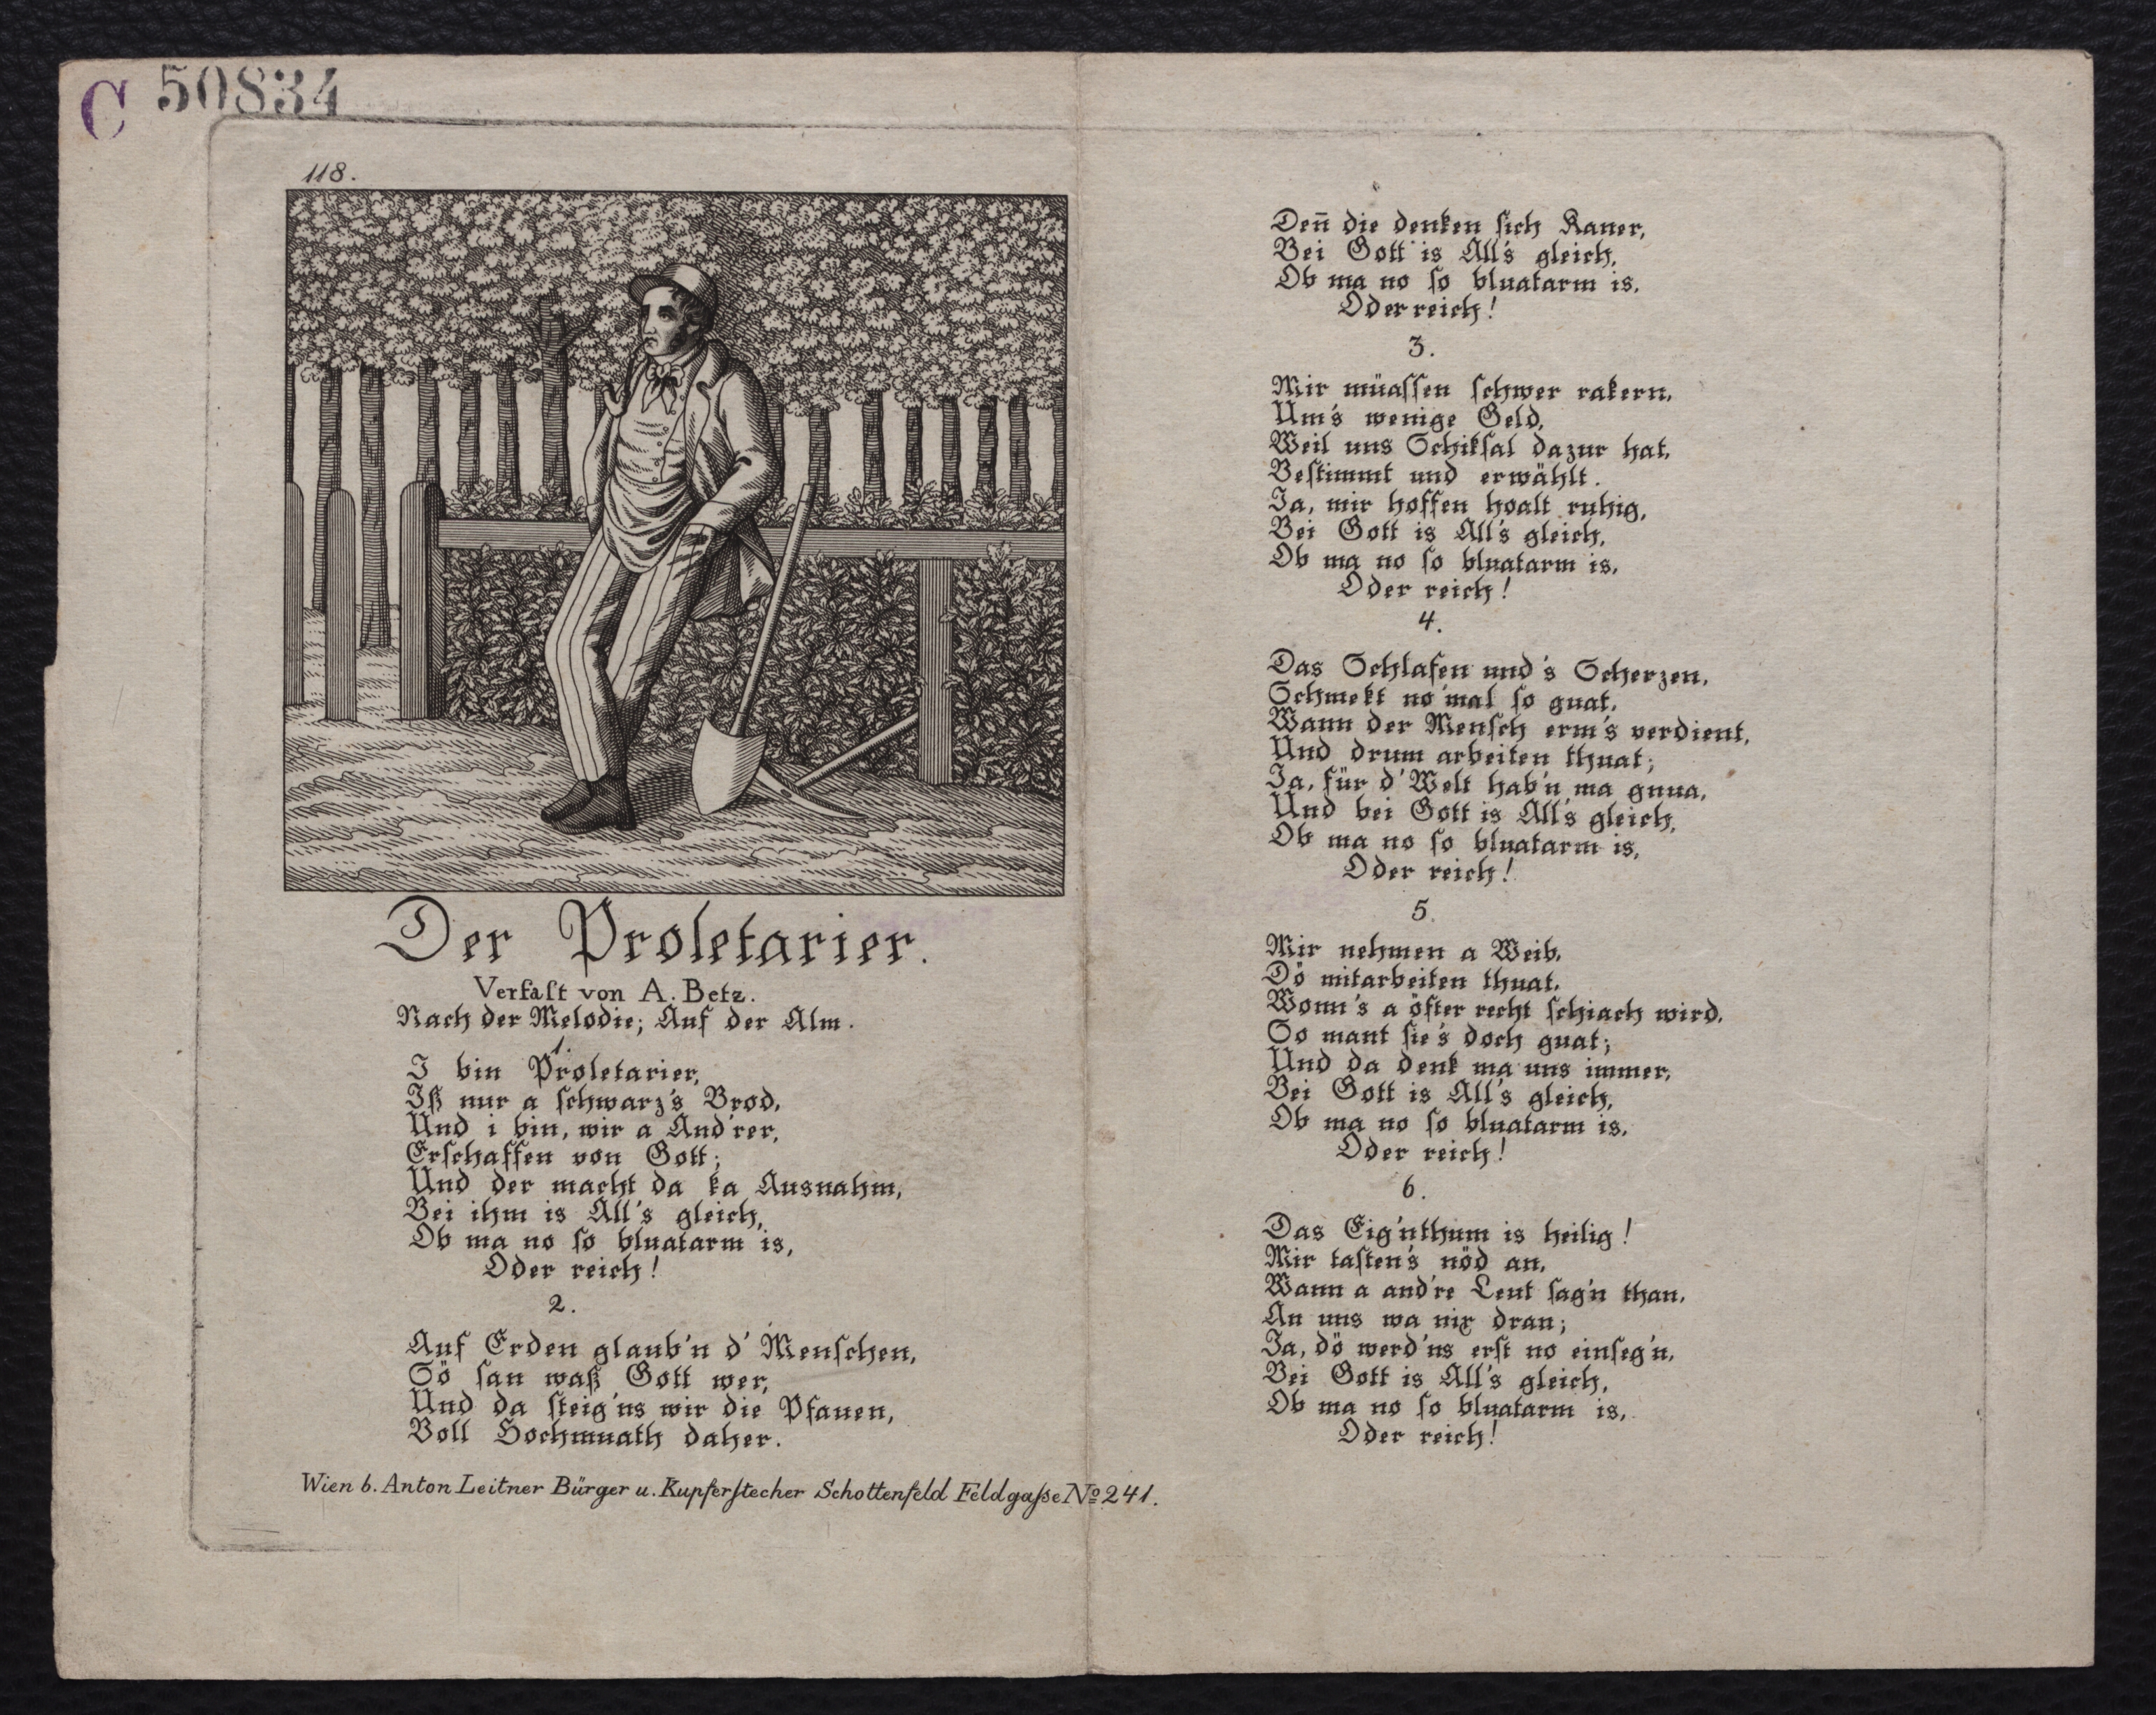 C 50834
118.
Der Proletarier.
Verfaſt von A. Betz.
Nach der Melodie; Auf der Alm.
1.
I bin Proletarier,
Iß nur a ſchwarz's Brod,
Und i bin, wir a And'rer,
Erſchaffen von Gott;
Und der macht da ka Ausnahm,
Bei ihm is All's gleich,
Ob ma no ſo bluatarm is,
Oder reich!
2.
Auf Erden glaub'n d' Menſchen,
Sö ſan waß Gott wer,
Und da ſteig'ns wir die Pfauen,
Voll Hochmuath daher.
Wien b. Anton Leitner Bürger u. Kupferſtecher Schottenfeld Feldgaſse No 241.
Den̄ die denken ſich Kaner,
Bei Gott is All's gleich,
Ob ma no ſo bluatarm is,
Oder reich!
3.
Mir müaſſen ſchwer rakern,
Um's wenige Geld,
Weil uns Schikſal dazur hat,
Beſtimmt und erwählt.
Ja, mir hoffen hoalt ruhig,
Bei Gott is All's gleich,
Ob ma no ſo bluatarm is,
Oder reich!
4.
Das Schlafen und's Scherzen,
Schmekt no'mal ſo guat,
Wann der Menſch erm's verdient,
Und drum arbeiten thuat;
Ja, für d' Welt hab'n ma gnua,
Und bei Gott is All's gleich,
Ob ma no ſo bluatarm is,
Oder reich!
5.
Mir nehmen a Weib,
Dö mitarbeiten thuat,
Wonn's a öfter recht ſchiach wird,
So mant ſie's doch guat;
Und da denk ma uns immer,
Bei Gott is All's gleich,
Ob ma no ſo bluatarm is,
Oder reich!
6.
Das Eig'nthum is heilig!
Mir taſten's nöd an,
Wann a and're Leut ſag'n than,
An uns wa nix dran;
Ja, dö werd'ns erſt no einſeg'n,
Bei Gott is All's gleich,
Ob ma no ſo bluatarm is,
Oder reich!